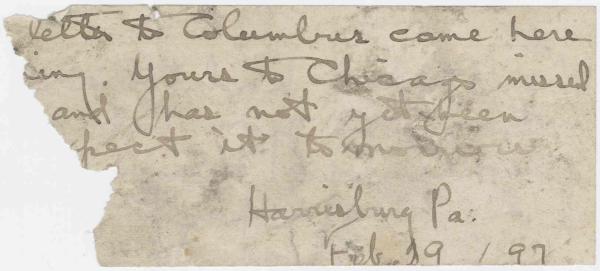 letter to Columbus came here
ing. Yours to Chicago missed
and has not yet been
pect it tomorrow
Harrisburg Pa.
Feb. / 97